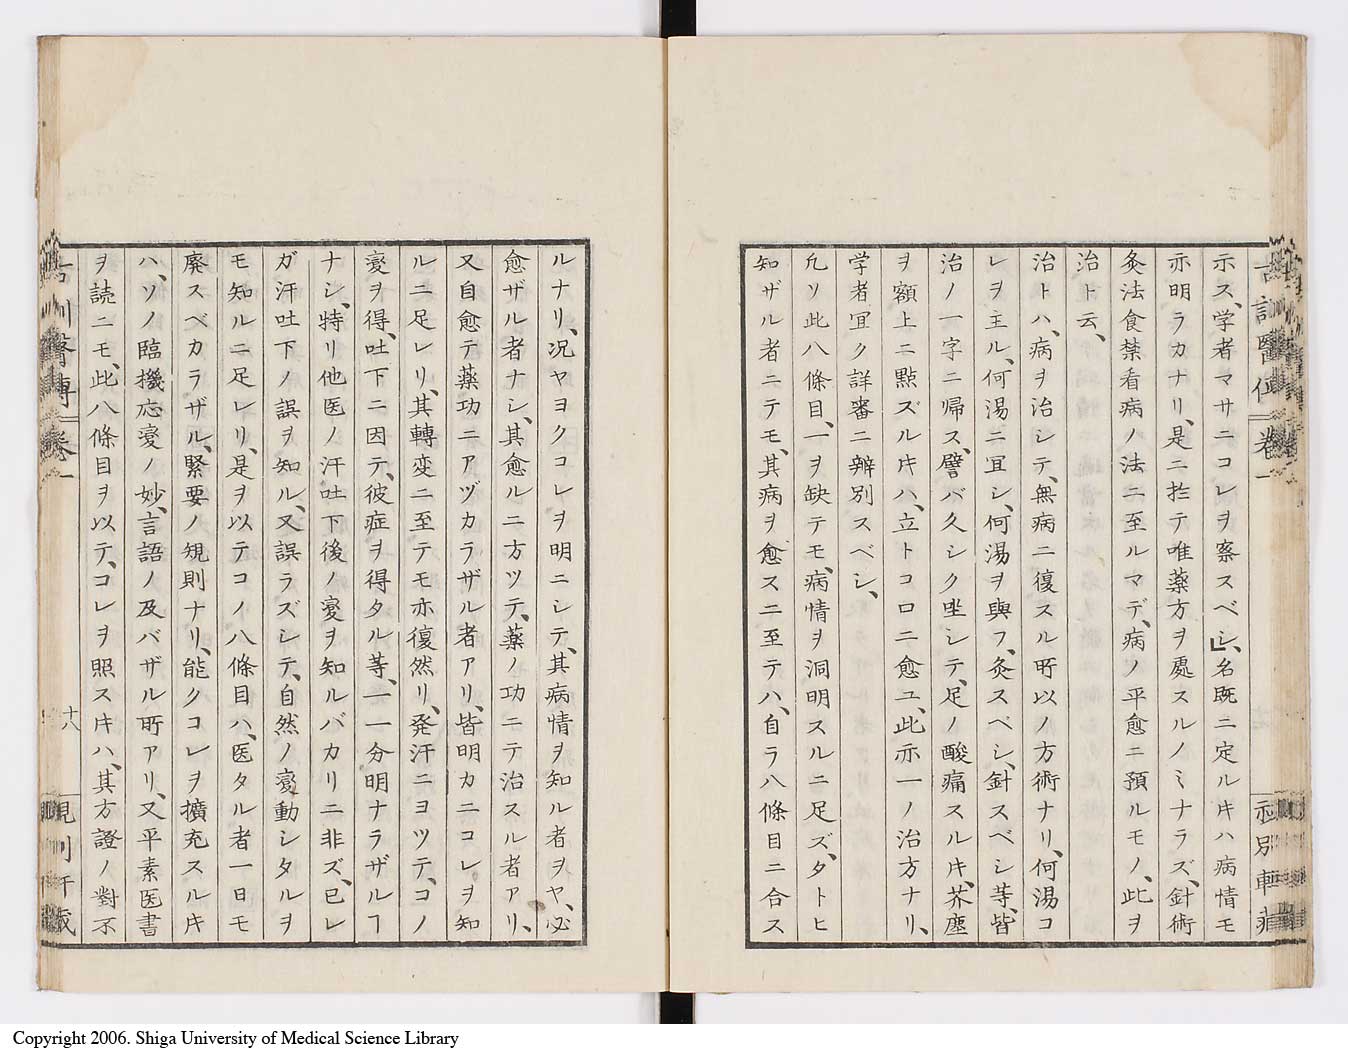 示ス、学者マサニコレヲ察スベシ」、名既ニ定ルキハ病情モ
亦明ラカナリ、是ニ於テ唯薬方ヲ處スルノミナラズ、針術
灸法食禁看病ノ法ニ至ルマデ、病ノ平愈ニ預ルモノ、此ヲ
治ト云、
治トハ、病ヲ治シテ、無病ニ復スル所以ノ方術ナリ、何湯コ
レヲ主ル、何湯ニ冝シ、何湯ヲ與フ、灸スベシ、針スベシ等、皆
治ノ一字ニ帰ス、譬バ久シク坐シテ、足ノ酸痛スルキ、芥塵
ヲ額上ニ點ズルキハ、立トコロニ愈ユ、此亦一ノ治方ナリ、
学者冝ク詳審ニ辨別スベシ、
凢ソ此八條目、一ヲ缺テモ、病情ヲ洞明スルニ足ズ、タトヒ
知ザル者ニテモ、其病ヲ愈スニ至テハ、自ラ八條目ニ合ス
ルナリ、况ヤヨクコレヲ明ニシテ、其病情ヲ知ル者ヲヤ、必
愈ザル者ナシ、其愈ルニ方ツテ、薬ノ功ニテ治スル者アリ、
又自愈テ薬功ニアヅカラザル者アリ、皆明カニコレヲ知
ルニ足レリ、其轉変ニ至テモ亦復然リ、発汗ニヨツテ、コノ
変ヲ得、吐下ニ因テ、彼症ヲ得タル等、一一分明ナラザルヿ
ナシ、特リ他医ノ汗吐下後ノ変ヲ知ルバカリニ非ズ、已レ
ガ汗吐下ノ誤ヲ知ル、又誤ラズシテ、自然ノ変動シタルヲ
モ知ルニ足レリ、是ヲ以テコノ八條目ハ、医タル者一日モ
廃スベカラザル、緊要ノ規則ナリ、能クコレヲ擴充スルキ
ハ、ソノ臨機応変ノ妙、言語ノ及バザル所アリ、又平素医書
ヲ読ニモ、此八條目ヲ以テ、コレヲ照スキハ、其方證ノ對不
十八
Copyright 2006. Shiga University of Medical Science Library